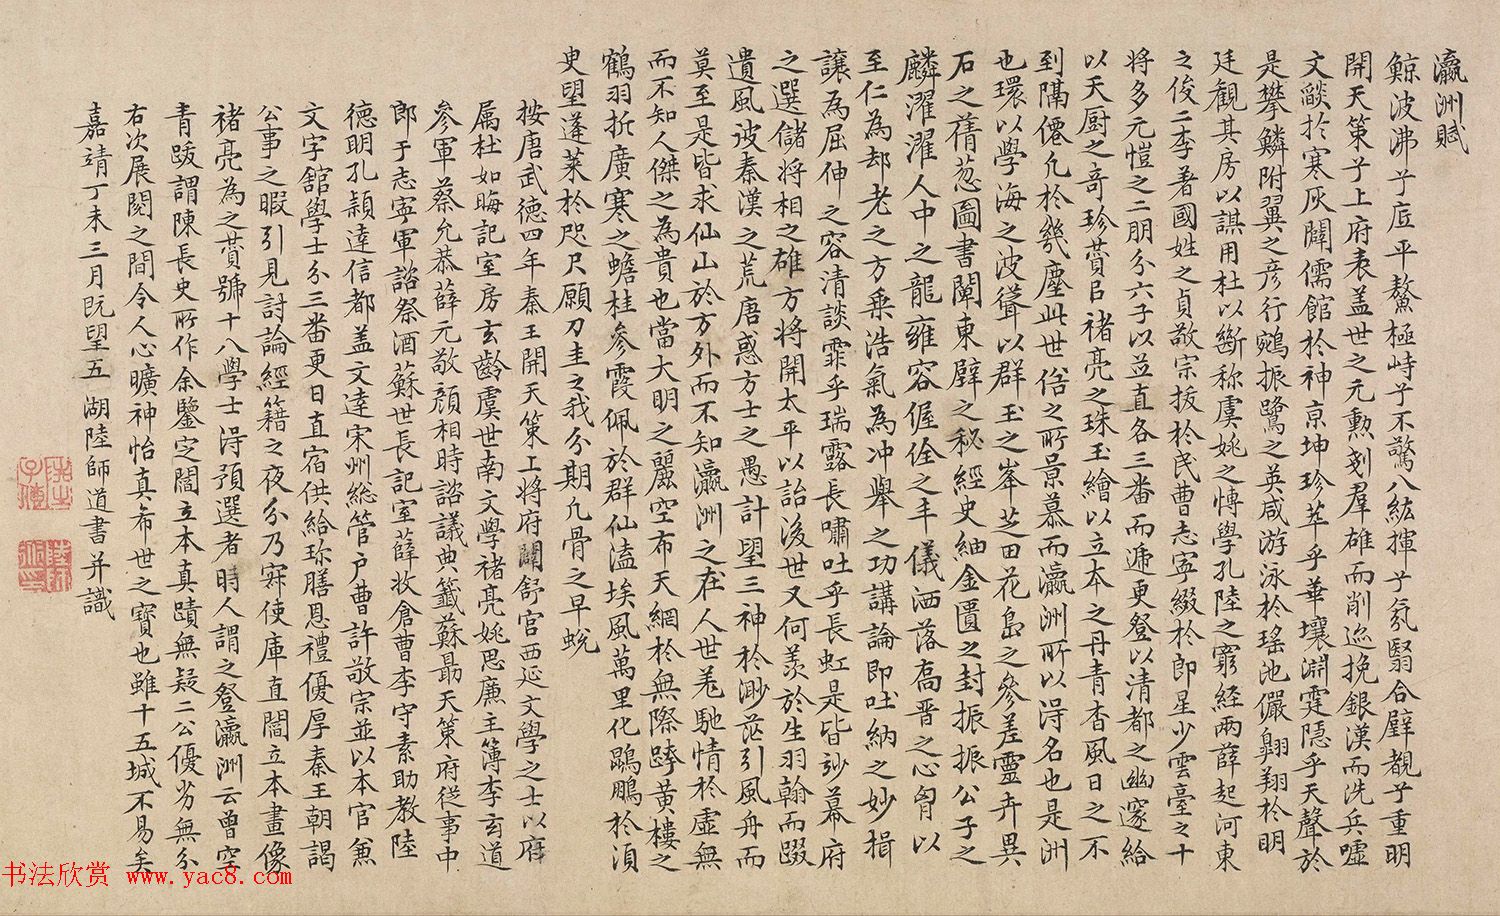 瀛洲賦
鯨波沸乎底平鰲極峙乎不驚八紘揮乎氛翳合璧覩乎重明
開天策乎上府表蓋世之元勳刻羣雄而削巡挽銀漢而洗兵噓
文燄於寒灰闢儒館於神京坤珍萃乎華壤淵霆隱乎天聲於
是攀鱗附翼之彥行鵷振鷺之英咸游泳於瑤池儼翱翔於明
廷觀其房以謀用杜以斷称虞姚之博學孔陸之窮经兩薛起河東
之俊二李著國姓之貞敬宗拔於民曹志寧綴於郎星少雲臺之十
将多元愷之二朋分六子以並直各三番而遞更登以清都之幽邃給
以天厨之奇珍賛㠯褚亮之珠玉繪以立本之丹青杳風日之不
到隔僊凡於幾塵此世俗之所景慕而瀛洲所以淂名也是洲
也環以學海之波聳以群玉之峯芝田花島之參差靈卉異
石之蒨葱圖書闡東壁之秘經史紬金匱之封振振公子之
麟濯濯人中之龍雍容偓佺之丰儀洒落高晋之心胷以
至仁為却老之方乗浩氣為冲舉之功講論即吐納之妙揖
讓為屈伸之容清談霏乎瑞露長嘯吐乎長虹是皆玅幕府
之選儲将相之雄方将開太平以詒後世又何羨於生羽翰而躡
遺風彼秦漢之荒唐惑方士之愚計望三神於渺茫引風舟而
莫至是皆求仙山於方外而不知瀛洲之在人世羌馳情於虛無
而不知人傑之為貴也當大明之麗空布天網於無際跨黃樓之
鶴羽折廣寒之蟾桂參霞佩於群仙溘埃風萬里化鵾鵬於湏
臾望蓬莱於咫尺願刀圭之我分期凡骨之早蛻
按唐武德四年秦王開天策上将府闢舒宫西延文學之士以府
属杜如晦記室房玄齡虞世南文學褚亮姚思廉主簿李玄道
參軍蔡允恭薛元敬顏相時諮議典籤蘇勗天策府從事中
郎于志寧軍諮祭酒蘇世長記室薛收倉曹李守素助教陸
德明孔穎達信都蓋文達宋州総管户曹許敬宗並以本官兼
文字舘學士分三番更日直宿供給珎膳恩禮優厚秦王朝謁
公事之暇引見討論經籍之夜分乃寐使庫直閻立本畫像
褚亮為之賛號十八學士淂預選者時人謂之登瀛洲云曾空
青跋謂陳長史所作余鑒定閻立本真蹟無疑二公優劣無分
右次展閱之間令人心曠神怡真希世之寶也雖十五城不易矣
嘉靖丁未三月既望五湖陸師道書并識
书法欣赏 www.yac8.com